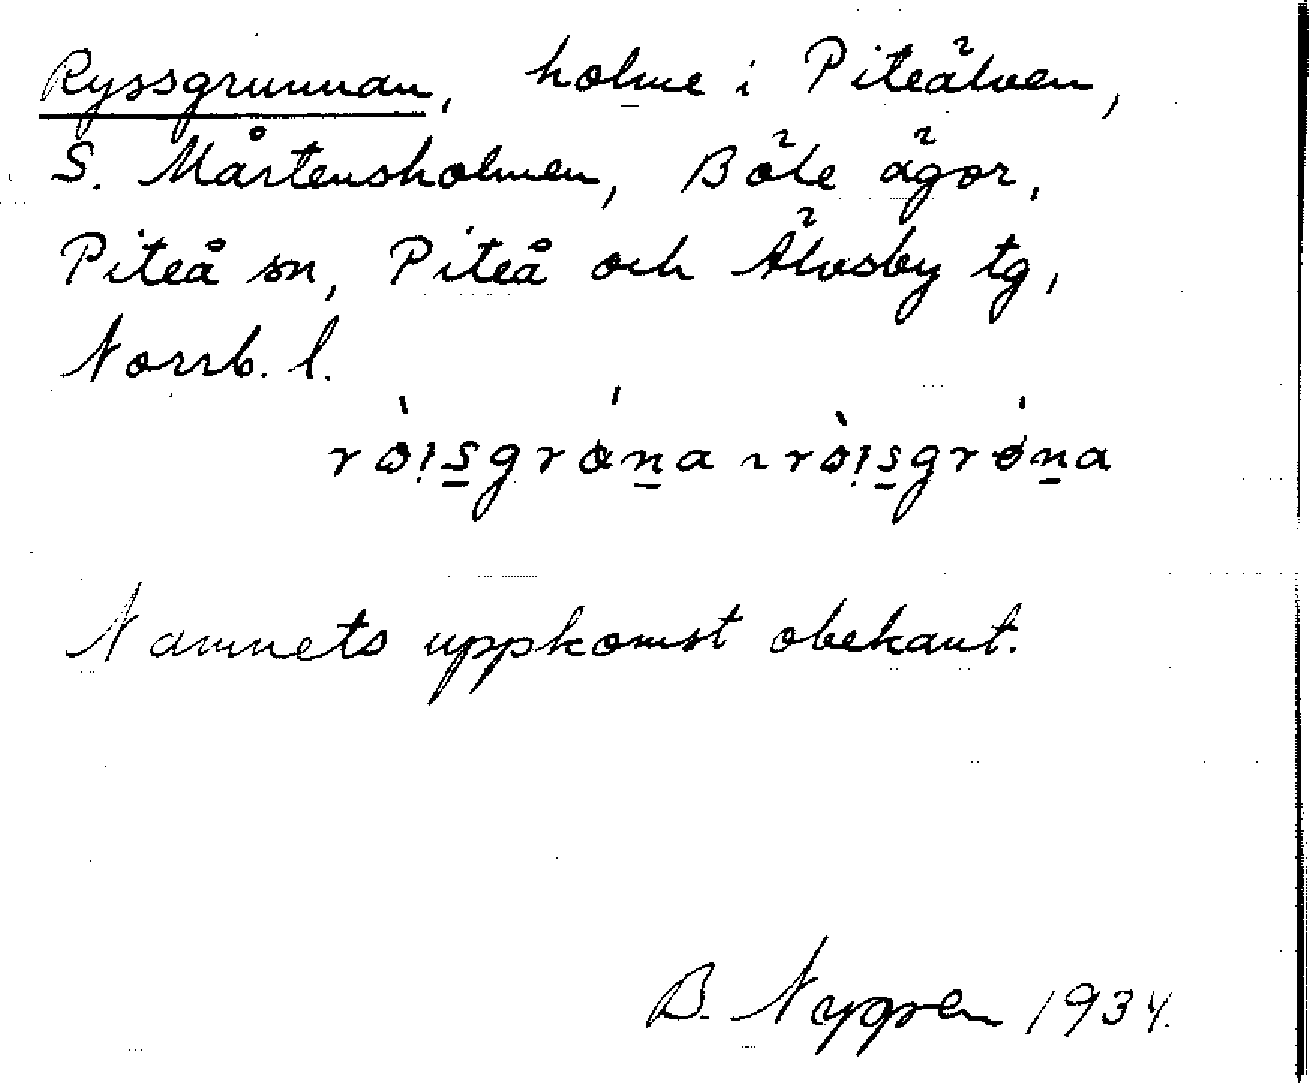 Ryssgrunnan, holme i Piteälven,
S. Mårtensholmen, Böle ägor,
Piteå sn, Piteå och Älvsby tg,
Norrb. l.
Namnets uppkomst obekant.
B. Nygren 1934.